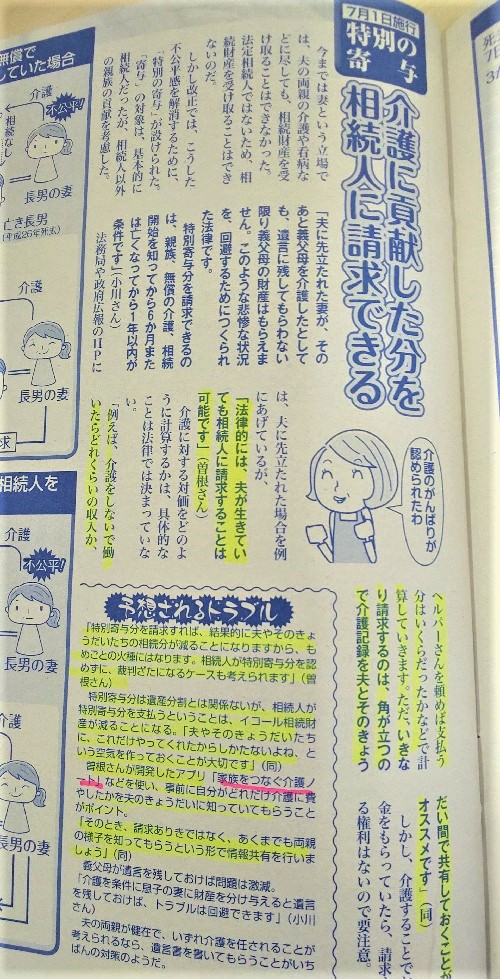 7月1日施行
特別の
寄与
介護に貢献した分を
相続人に請求できる
今までは妻という立場で
は、夫の両親の介護や看病な
どに尽しても、相続財産を受
け取ることはできなかった。
法定相続人ではないため、相
続財産を受け取ることはでき
ないのだ。
しかし改正では、こうした
不公平感を解消するために、
「特別の寄与」が設けられた。
「寄与」の対象は、基本的に
相続人だったが、相続人以外
の親族の貢献を考慮した。
「夫に先立たれた妻が、その
あと義父母を介護したとして
も、遺言に残してもらわない
限り義父母の財産はもらえま
せん。このような悲惨な状況
を、回避するためにつくられ
た法律です。
特別寄与分を請求できるの
は、親族、無償の介護、相続
開始を知ってから6か月また
は亡くなってから1年以内が
条件です」(小川さん)
法務局や政府広報のHPに
は、夫に先立たれた場合を例
にあげているが、
「法律的には、夫が生きてい
ても相続人に請求することは
可能です」(曽根さん)
介護に対する対価をどのよ
うに計算するかは、具体的な
ことは法律では決まっていな
い。
「例えば、介護をしないで働
いたらどれくらいの収入か、
ヘルパーさんを頼めば支払う
分はいくらだったかなどで計
算していきます。ただ、いきな
り請求するのは、角が立つの
で介護記録を夫とそのきょう
だい間で共有しておくことが
オススメです」(同)
しかし、介護することで
金をもらっていたら、請求
る権利はないので要注意。
介護のがんばりが
認められたわ
予想されるトラブル
「特別寄与分を請求すれば、結果的に夫やそのきょ
うだいたちの相続分が減ることになりますから、も
めごとの火種にはなります。相続人が特別寄与分を認
めずに、裁判ざたになるケースも考えられます」(曽
根さん)
特別寄与分は遺産分割とは関係ないが、相続人が
特別寄与分を支払うということは、イコール相続財
産が減ることになる。「夫やそのきょうだいたち
に、これだけやってくれたからしかたないよね、と
いう空気を作っておくことが大切です」(同)
曽根さんが開発したアプリ「家族をつなぐ介護ノ
ート」などを使い、事前に自分がどれだけ介護に費
やしたかを夫のきょうだいに知っていてもらうこと
がポイント。
「そのとき、請求ありきではなく、あくまでも両親
の様子を知ってもらうという形で情報共有を行いま
しょう」(同)
義父母が遺言を残しておけば問題は激減。
「介護を条件に息子の妻に財産を分け与えると遺言
を残しておけば、トラブルは回避できます」(小川
さん)
夫の両親が健在で、いずれ介護を任されることが
考えられるなら、遺言書を書いてもらうことがいち
ばんの対策のようだ。
無償で
していた場合
介護
不公平!
相続なし
長男の妻
亡き長男
(平成26年死亡)
介護
長男の妻
求
相続人を
介護
不公平!
長男の妻
介護
長男の妻